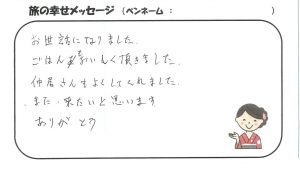 旅の幸せメッセージ（ペンネーム：　　　）
お世話になりました。
ごはん美いしく頂きました。
仲居さんもよくしてくれました。
また、来たいと思います
ありがとう